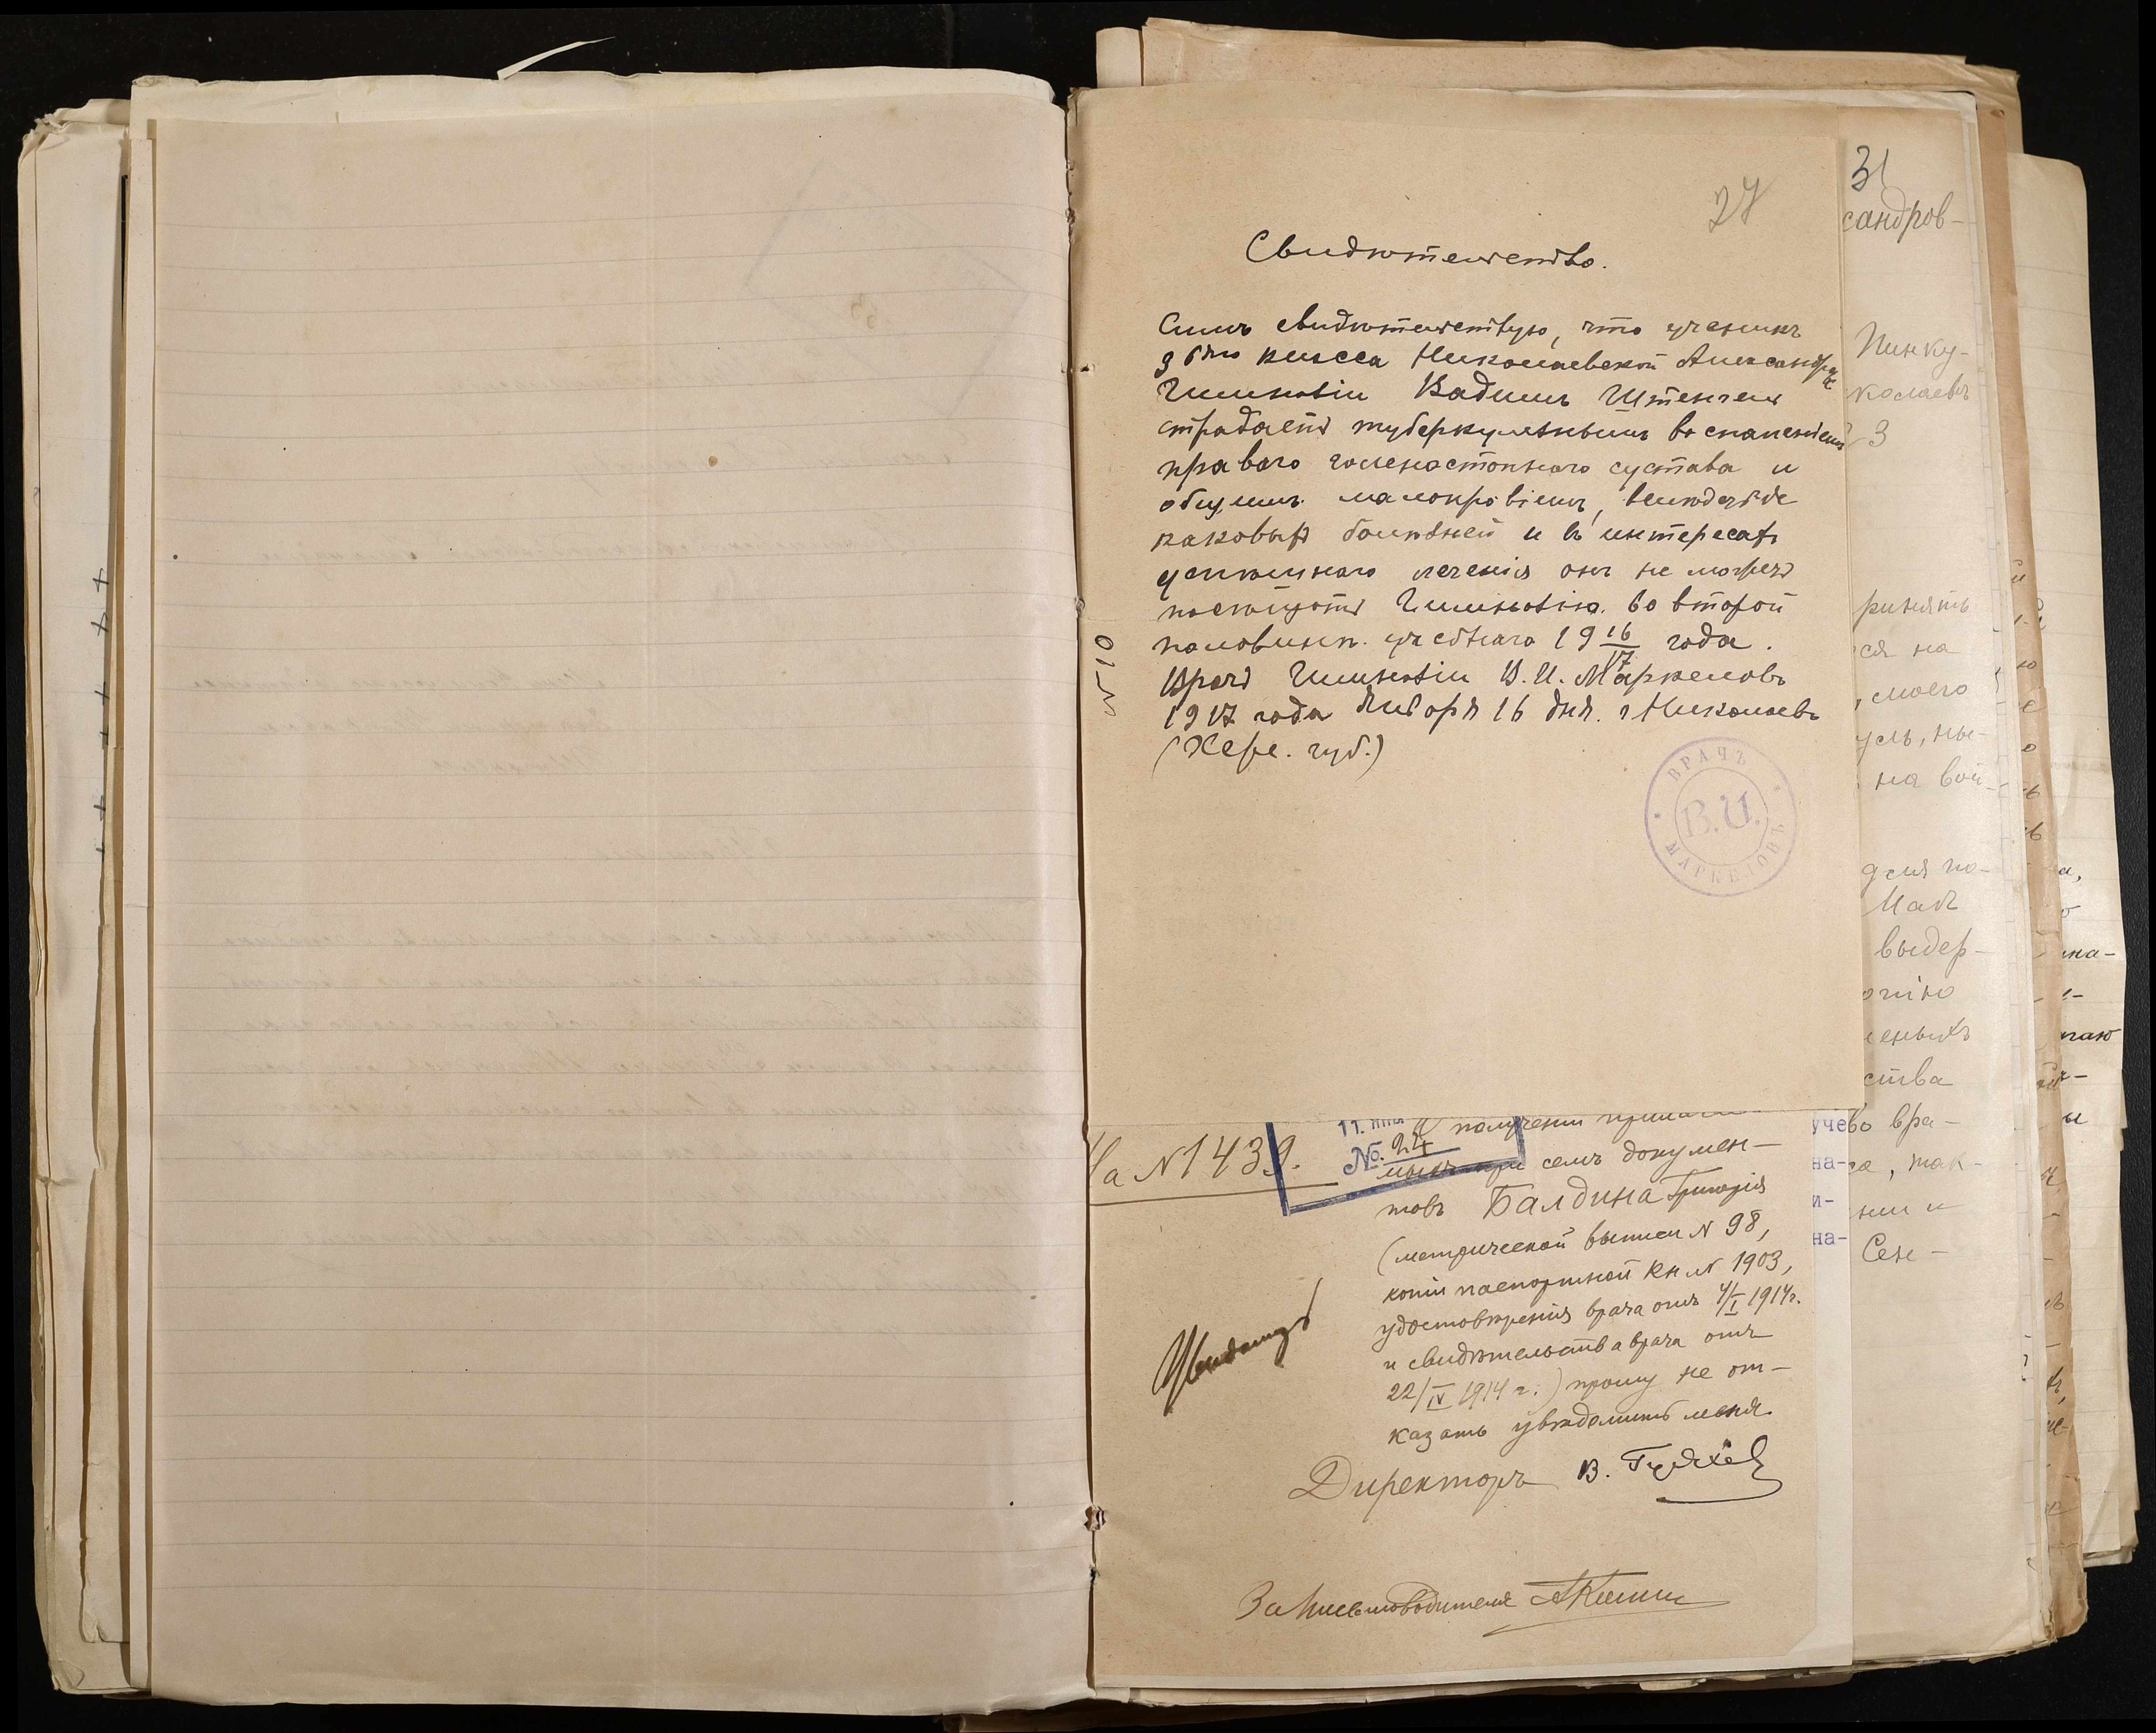 27
Свидѣтельство.
Симъ свидѣтельствую, что ученикъ
3 б го класса Николаевской Александр.
Гимназіи Вадимъ Штенгель
страдаетъ туберкулезнымъ воспаленіемъ
праваго голеностопнаго сустава и
общимъ малокровіемъ, вслѣдствіе
каковыхъ болѣзней и въ интересахъ
успѣшнаго леченія онъ не можетъ
посѣщать Гимназію во второй
половинѣ учебнаго 19 16/17 года.
Врачъ Гимназіи В. И. Маркеловъ
1917 года Января 16 дня. г. Николаевъ
(Херс. губ.)
ВРАЧЪ
В. И.
МАРКЕЛОВЪ
№ 10
На № 1439.
11.
№. 24
получении
при семъ докумен-
товъ Балдина Григорія
(метрической выписи № 98,
копіи паспортной кн № 1903,
удостовѣренія врача отъ 4/I 1914г.
и свидѣтельства врача отъ
22/IV 1914 г.) прошу не от-
казать увѣдомить меня.
Директоръ В.
За Письмоводителя
31
сандров-
Пинку-
колаевъ
3
ринять
ся на
, моего
усль, ны-
на вой-
для по-
Мая
выдер-
ства
во вра-
са, так-
нии и
Сен-